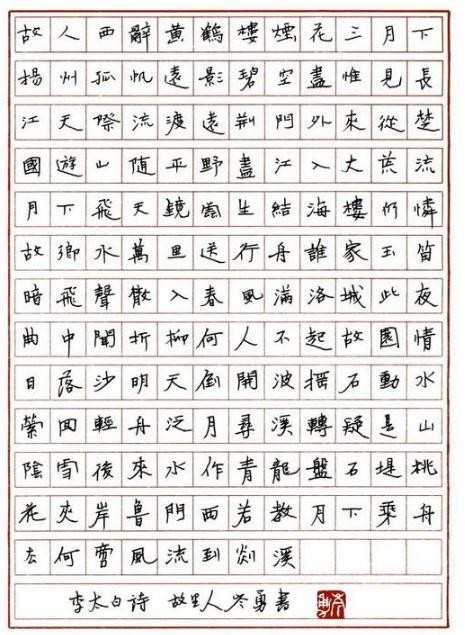 故人西辭黃鶴樓煙花三月下
揚州孤帆遠影碧空盡惟見長
江天際流渡遠荆門外來從楚
國遊山随平野盡江入大荒流
月下飛天鏡雲生結海樓仍憐
故鄉水萬里送行舟誰家玉笛
暗飛聲散入春風滿洛城此夜
曲中聞折柳何人不起故園情
日落沙明天倒開波摇石動水
縈回輕舟泛月尋溪轉疑是山
陰雪後來水作青龍盤石堤桃
花夾岸魯門西若教月下乘舟
去何啻風流到剡溪
李太白诗 故里人岑勇書